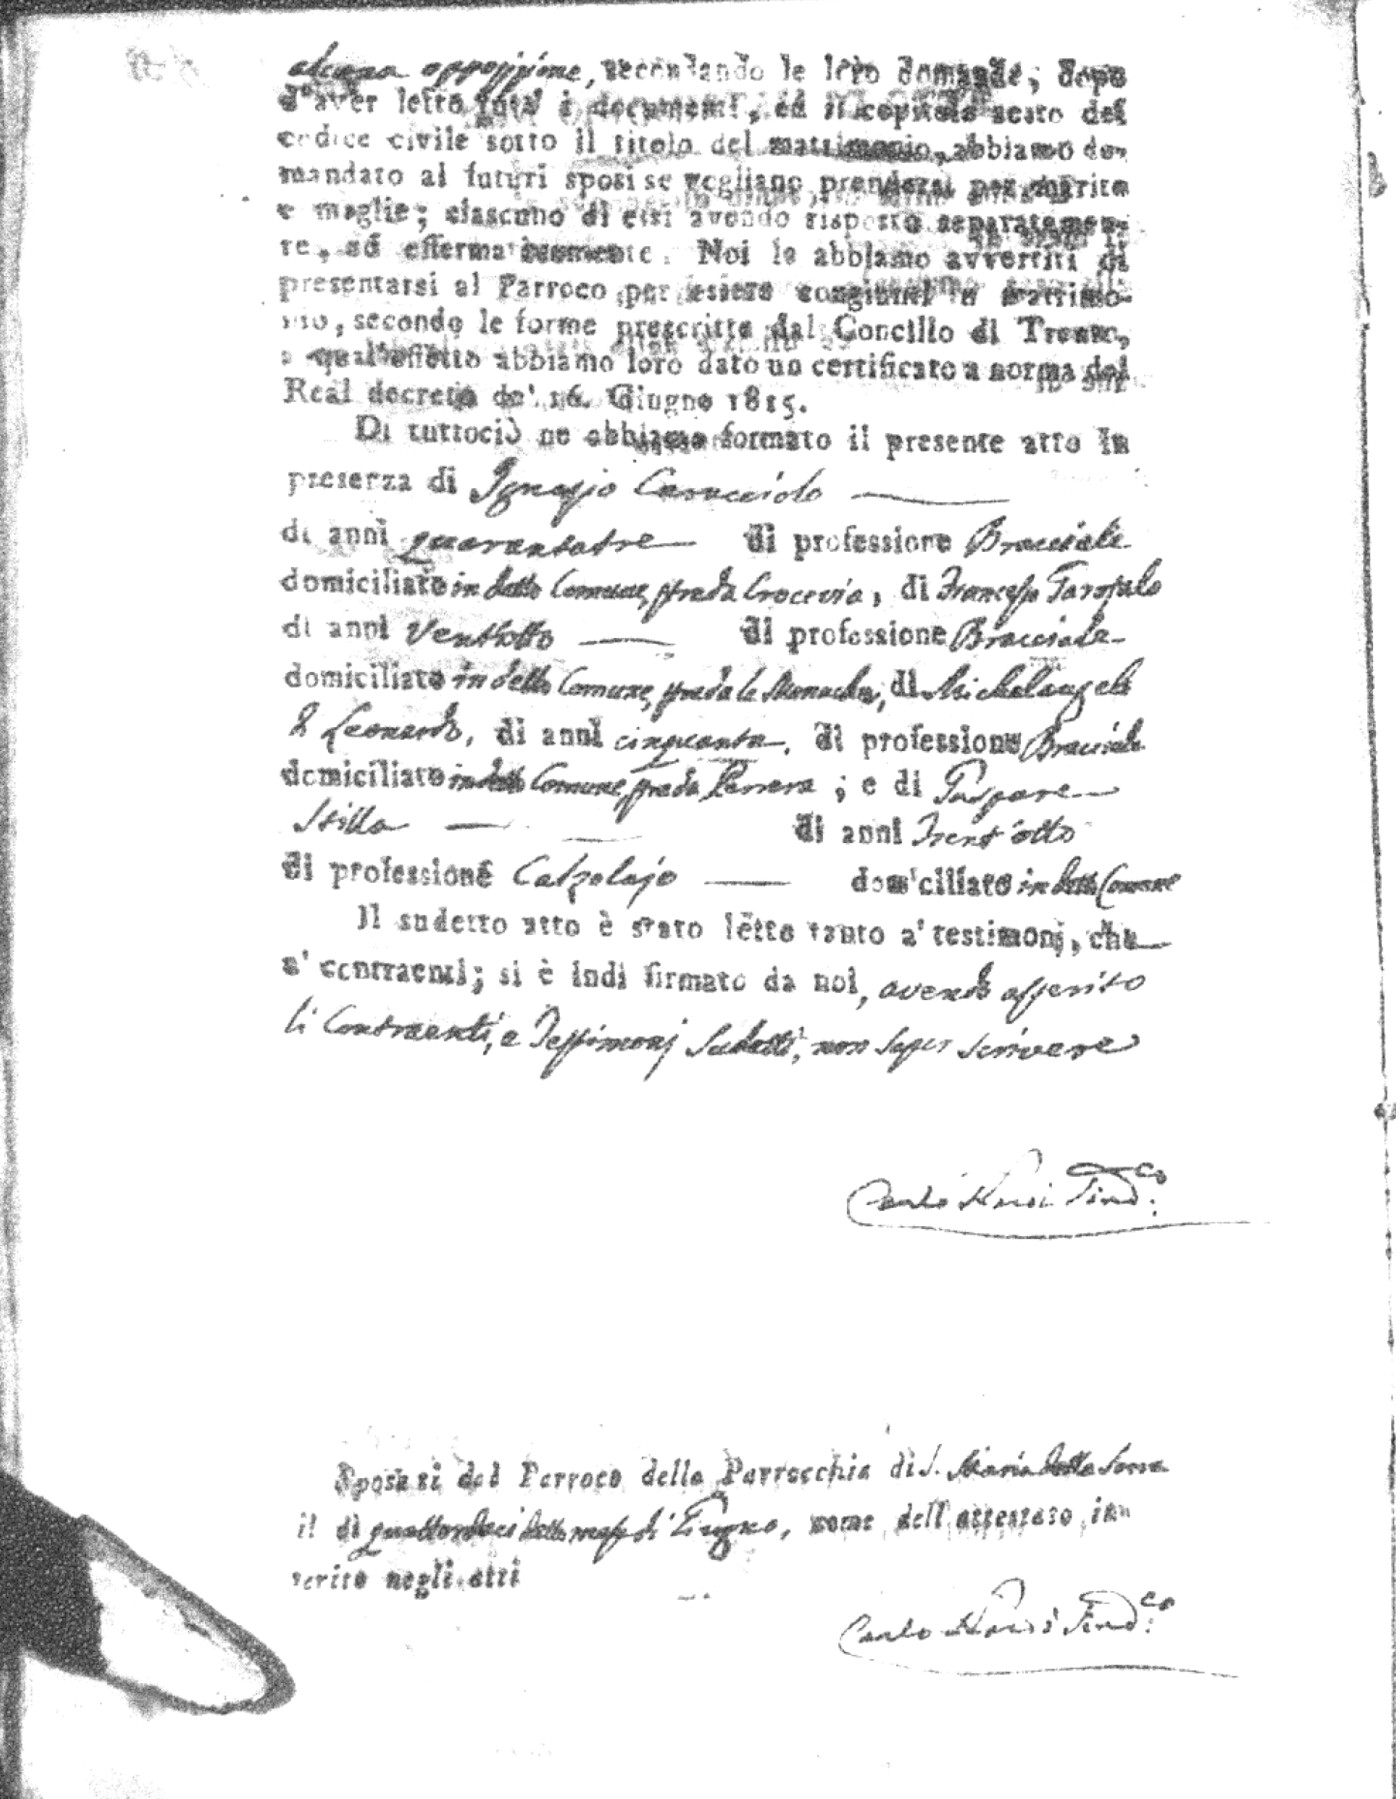 alcuna opposizione, secondando le loro domande, dopo
d'aver letto tutti i documenti, ed il capitolo sesto del
codice civile sotto il titolo del matrimonio, abbiamo do-
mandato ai futuri sposi se vogliano prendersi per marito
e moglie; ciascuno di essi avendo risposto separatamen-
te, ed affermativamente. Noi le abbiamo avvertiti di
presentarsi al Parroco per essere congiunti in matrimo-
nio, secondo le forme prescritte dal Concilio di Trento,
a qual'effetto abbiamo loro dato un certificato a norma del
Real decreto de' 16. Giugno 1815.
Di tuttociò ne abbiamo formato il presente atto in
presenza di Ignazio Caracciolo
di anni quarantatre di professione Bracciale
domiciliato in detto Comune, strada Crocevia, di Francesco Garofalo
di anni Ventiotto di professione Bracciale
domiciliato in detto Comune, strada le Monache, di Michelangelo
Leonardo, di anni cinquanta, di professione Bracciale
domiciliato in detto Comune strada ; e di Gaspare
Stilla di anni Trent'otto
di professione Calzolajo domiciliato in detto Comune
Il sudetto atto è stato letto tanto a' testimonj, che
a' contraenti; si è indi firmato da noi, avendo asserito
li Contraenti, e Testimonj sudetti, non saper scrivere
Carlo Sind.co
Sposati dal Parroco della Parrocchia di S. Maria della Serra
il dì quattordeci detto mese di Giugno, come dell'attestato in-
serito negli atti
Carlo Sind.co